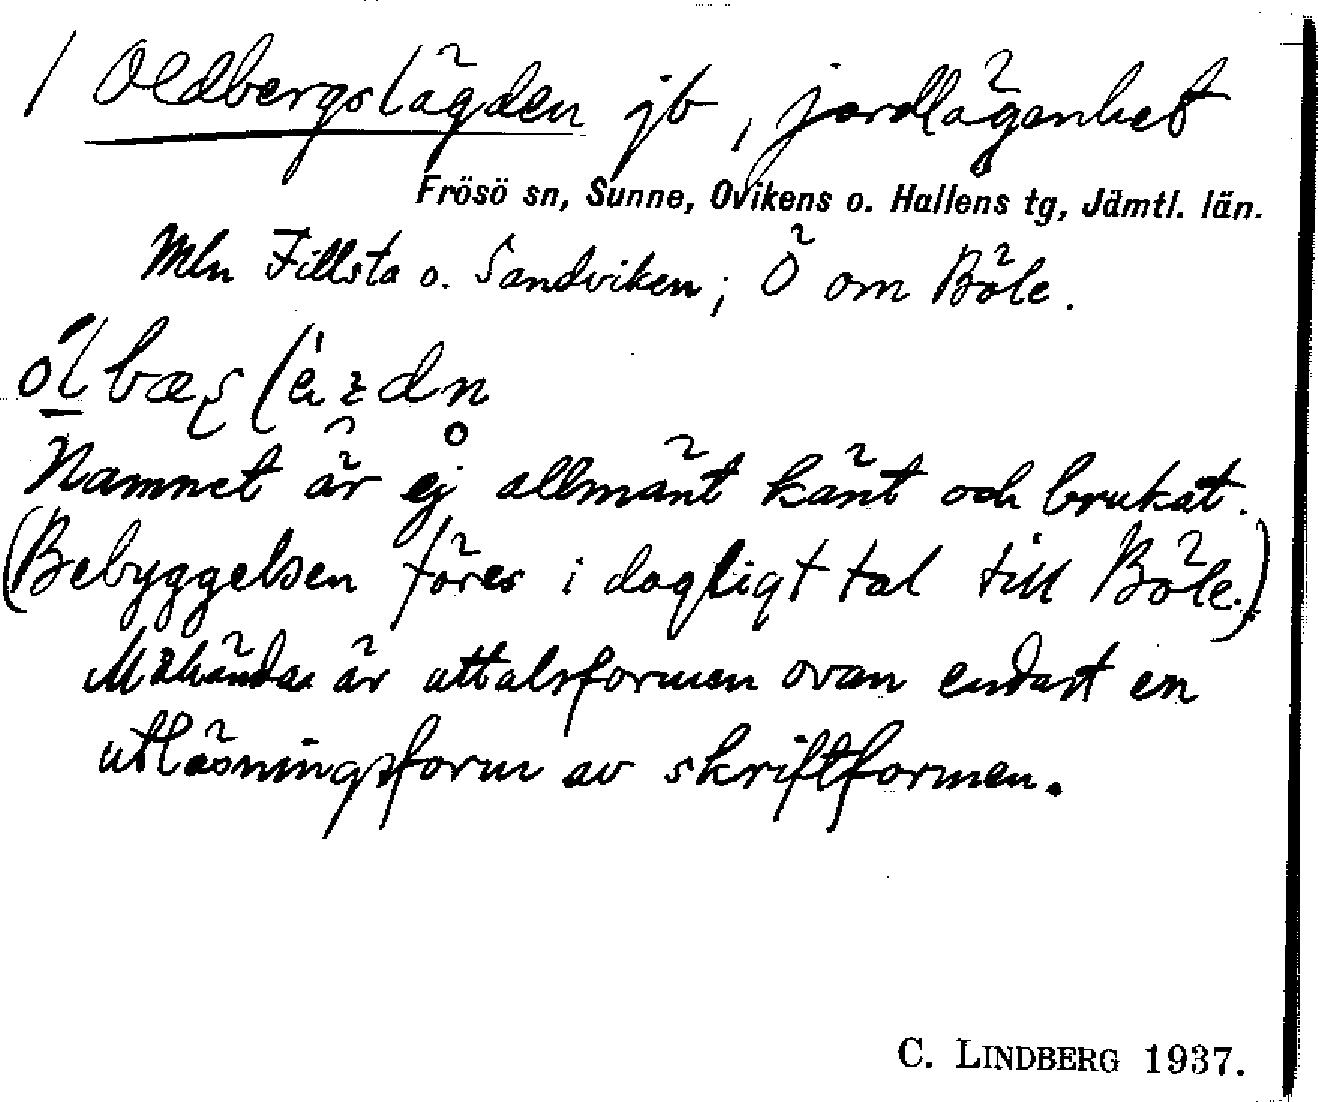 / Oldbergslägden jb, jordlägenhet
Frösö sn, Sunne, Ovikens o. Hallens tg, Jämtl. län.
Mln Fillsta o. Sandviken; Ö om Böle.
Namnet är ej allmänt känt och brukat.
(Bebyggelsen föres i dagligt tal till Böle.)
Måhända är uttalsformen ovan endast en
utläsningsform av skriftformen.
C. LINDBERG 1937.